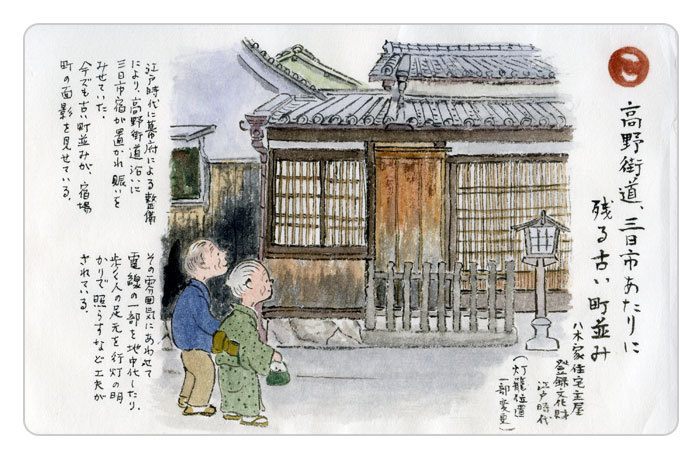 こ
高野街道、三日市あたりに
残る古い町並み
八木家住宅主屋
登録文化財
江戸時代
（灯籠位置
一部変更）
江戸時代に幕府による整備
により、高野街道沿いに
三日市宿が置かれ賑いを
みせていた。
今でも古い町並みが、宿場
町の面影を見せている。
その雰囲気にあわせて
電線の一部を地中化したり、
歩く人の足元を行灯の明
かりで照らすなど工夫が
されている。